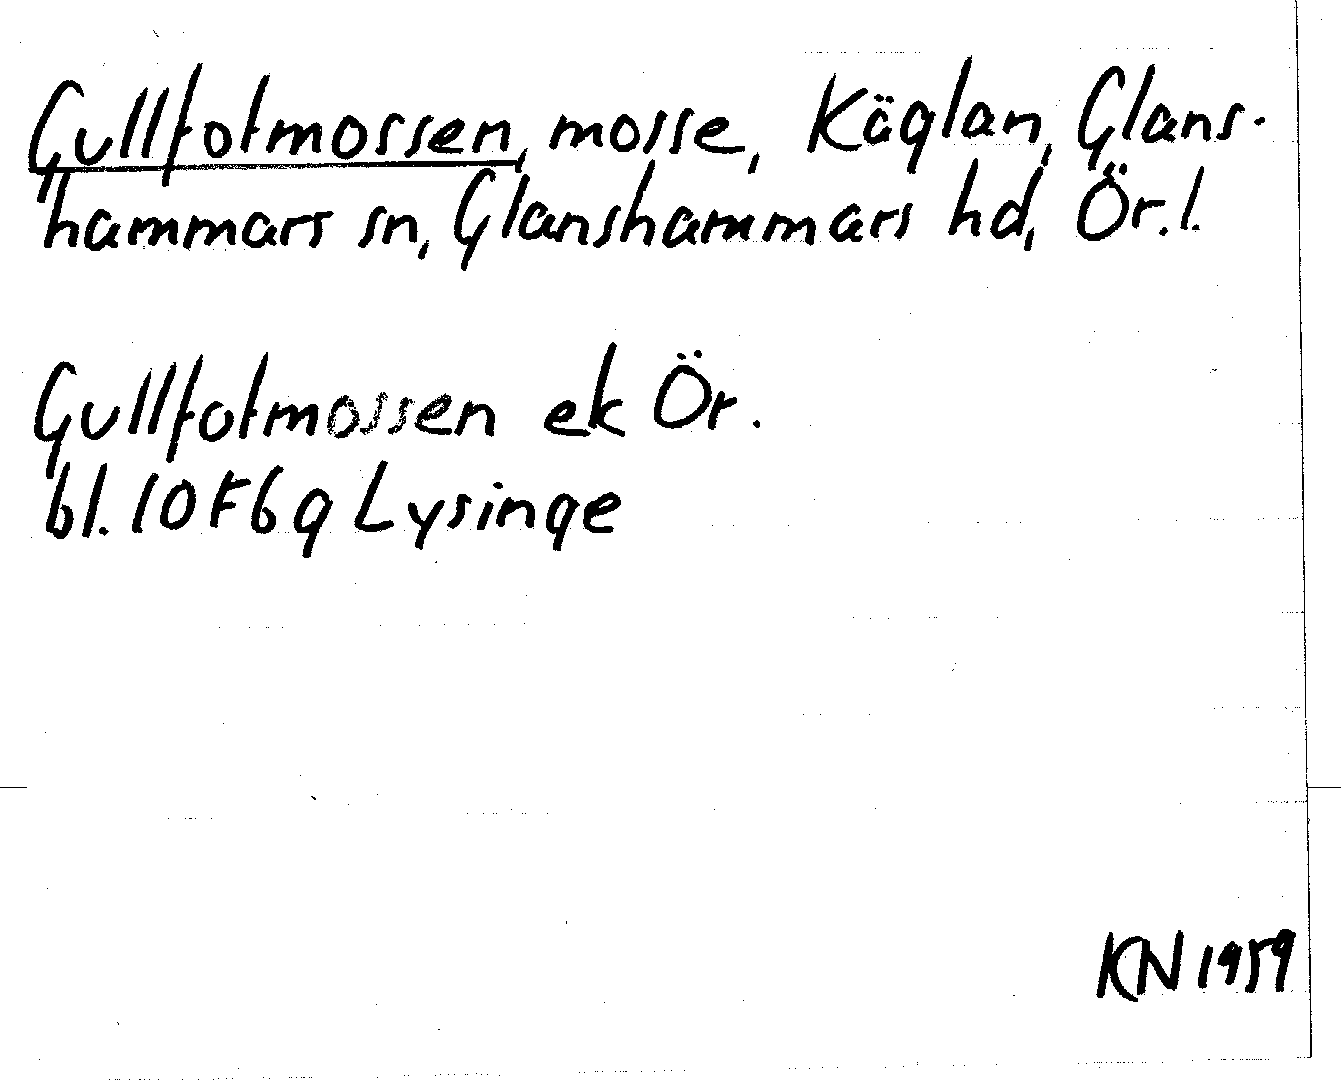 Gullfotmossen, mosse, Käglan, Glans-
hammars sn, Glanshammars hd, Ör. l.
Gullfotmossen ek Ör.
bl. 10F6g Lysinge
KN 1959